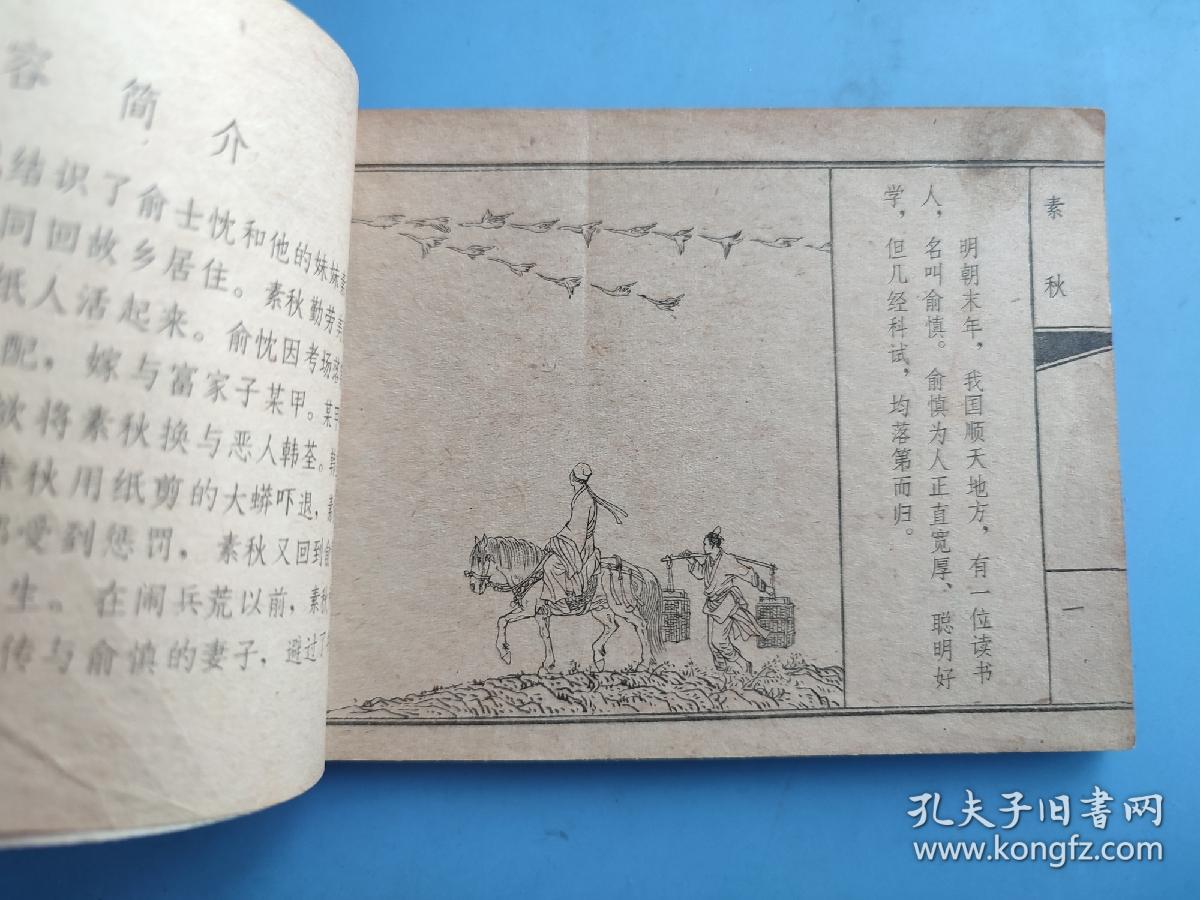 容简介
结识了俞士忱和他的妹妹
同回故乡居住。素秋勤劳
纸人活起来。俞忱因考场落
配,嫁与富家子某甲。某甲
欲将素秋换与恶人韩荃。
素秋用纸剪的大蟒吓退,
受到惩罚,素秋又回到俞
生。在闹兵荒以前,素秋
传与俞慎的妻子,避过了
素秋
一
明朝末年,我国顺天地方,有一位读书
人,名叫俞慎。俞慎为人正直宽厚、聪明好
学,但几经科试,均落第而归。
孔夫子旧书网
www.kongfz.com